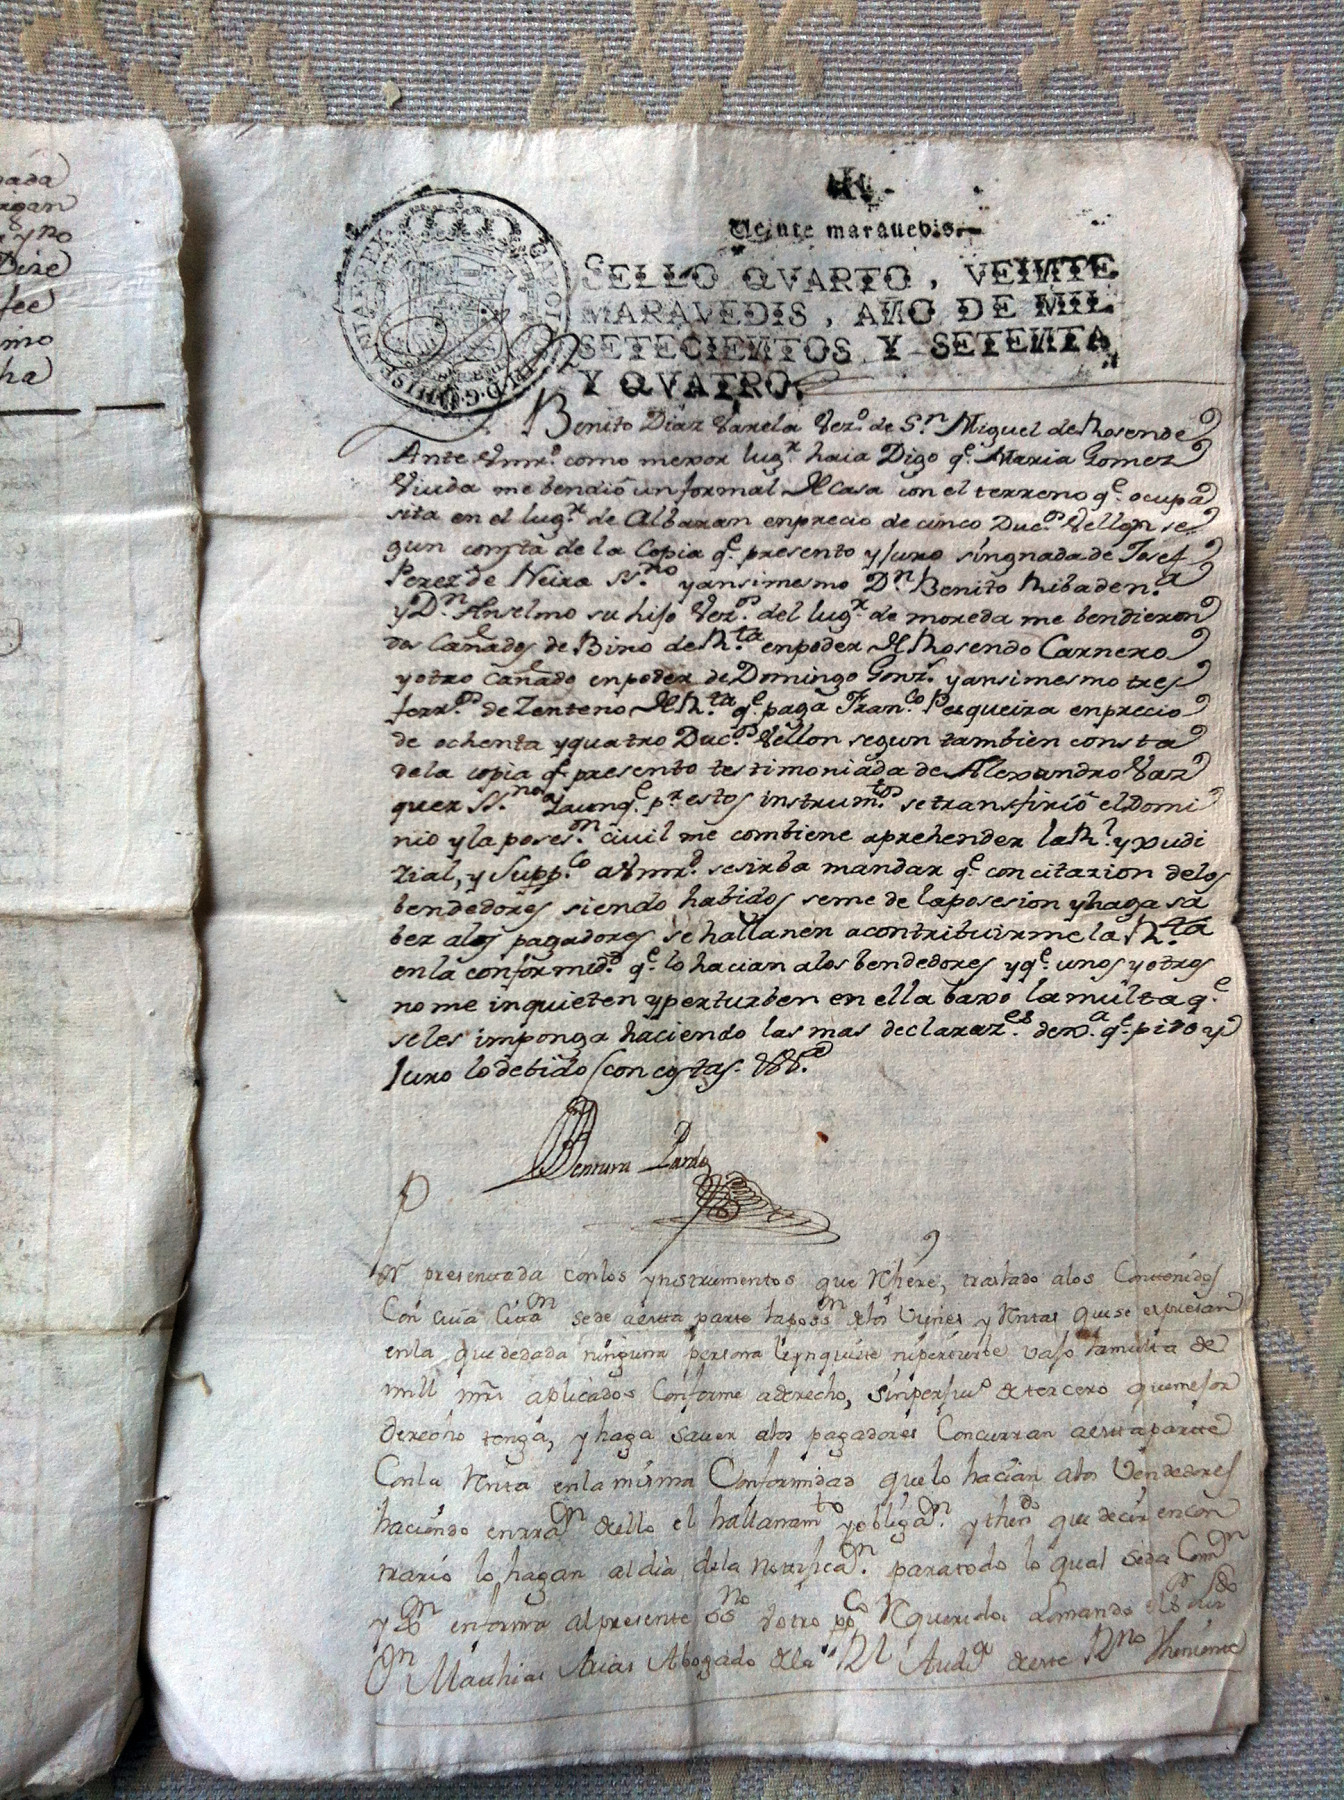 nada
rgan
yno
Dize
fee
imo
ha
CAROLUS III D G HISPANIAR REX
Veinte maravedis.
SELLO QVARTO, VEINTE
MARAVEDIS, AÑO DE MIL
SETECIENTOS Y SETENTA
Y QVATRO.
Benito Diaz Varela Vez.º de S.n Miguel de Rosende
Ante Vmr.d como mexor lug.r haia Digo q.e Maria Gomez
Viuda me bendió un formal de Casa con el terreno q.e ocupa
sita en el lug.r de Albaran en precio de cinco Duc.os Vellon se
gun consta de la Copia q.e presento y Juro singnada de Josef
Perez de Neira ss.no y ansimesmo D.n Benito Ribaden.a
y D.n Anselmo su hijo Vez.os del lug.r de moreda me bendieron
dos Cañados de Bino de R.ta en poder de Rosendo Carnero
y otro Cañado en poder de Domingo Gonz.z y ansimesmo tres
ferr.os de Zenteno de R.ta q.e paga Fran.co Pesqueira en precio
de ochenta y quatro Duc.os Vellon segun tambien consta
de la copia q.e presento testimoniada de Alexandro Vaz
quez ss.no Yaunq.e p.r estos instrum.tos se transfirió el Domi
nio y la poses.on civil me combiene aprehender la R.l y xudi
zial, y Supp.co a Vmr.d se sirba mandar q.e con citazion de los
bendedores siendo habidos se me de la posesion y haga sa
ber a los pagadores se hallanen a contribuirme la R.ta
en la conformid.d q.e lo hacian a los bendedores y q.e unos y otros
no me inquieten y perturben en ella baxo la multa q.e
se les imponga haciendo las mas declaraz.es de xa q.e pido y
Juro lo debido con costas.
Bentura Pardo
Por presentada con los ynstrumentos que Rfiere, traslado a los Contenidos
Con cuia Cita.on se de a esta parte la poss.on de los Vienes y Rntas que se expresan
en la que dedada ninguna persona le ynquiete ni perturbe vajo la multa de
mill mrs aplicados Conforme a derecho, sin perjui.o de tercero que mejor
derecho tenga, y haga saver a los pagadores Concurran a esta parte
Con la Rnta en la misma Conformidad que lo hacian a los Vendedores
haciendo en rra.on de ello el hallanam.to y obliga.on y then.do que decir en con
trario lo hagan al dia de la Notifica.on para todo lo qual se da Com.on
y en forma al presente ss.no u otro pp.co Rquerido: Lo mando el
D.n Mathias Arias Abogado de la Rl Aud.a de este R.no Theniente